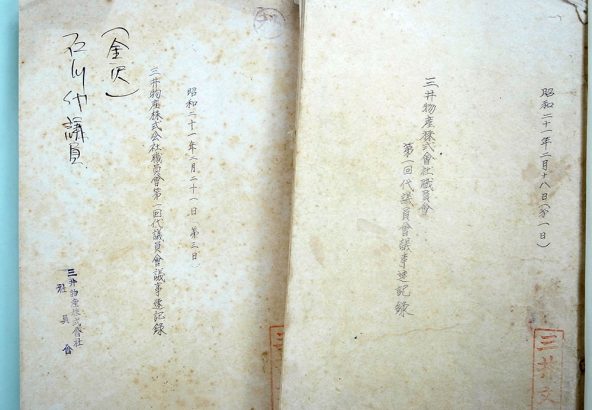 昭和二十一年二月十八日(第一日)
三井物産株式會社職員會
第一回代議員會議事速記錄
三井文
昭和二十一年二月二十一日 第三日
三井物産株式会社職員會第一回代議員會議事速記錄
(金沢)
石川代議員
三井物産株式會社
社員會